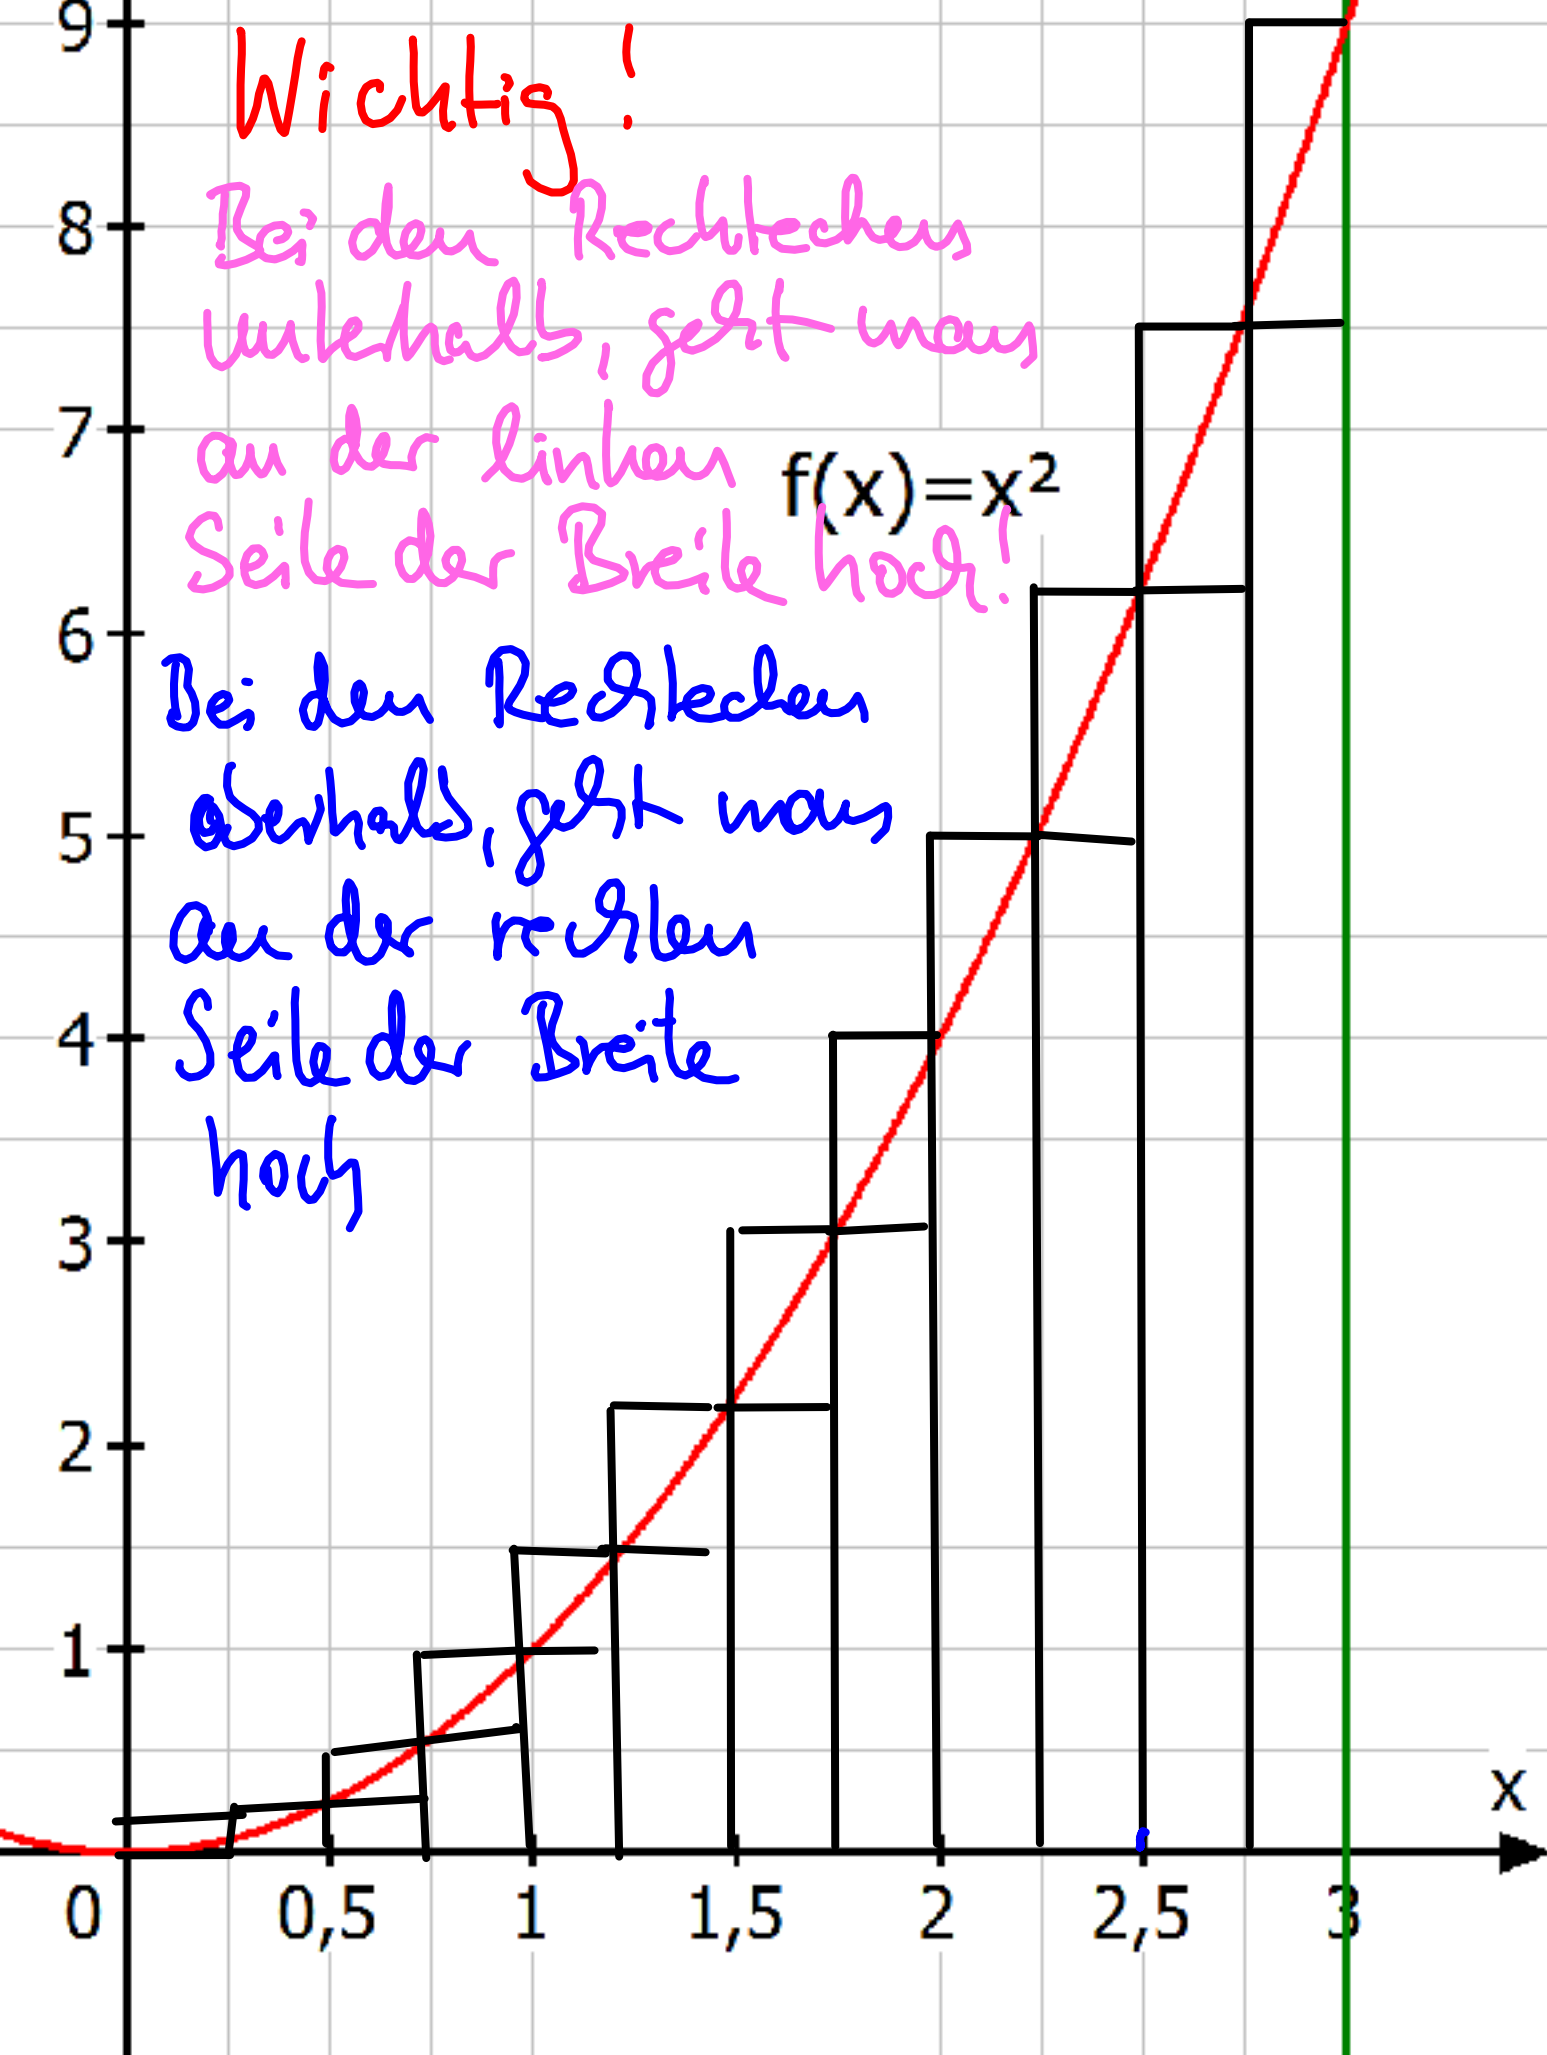 9
Wichtig!
8
Bei den Rechtecken
unterhalb, geht man
7
an der linken
f(x)=x²
Seite der Breite hoch!
6
Bei den Rechtecken
oberhalb, geht man
5
an der rechten
4
Seite der Breite
hoch
3
2
1
x
0 0,5 1 1,5 2 2,5 3